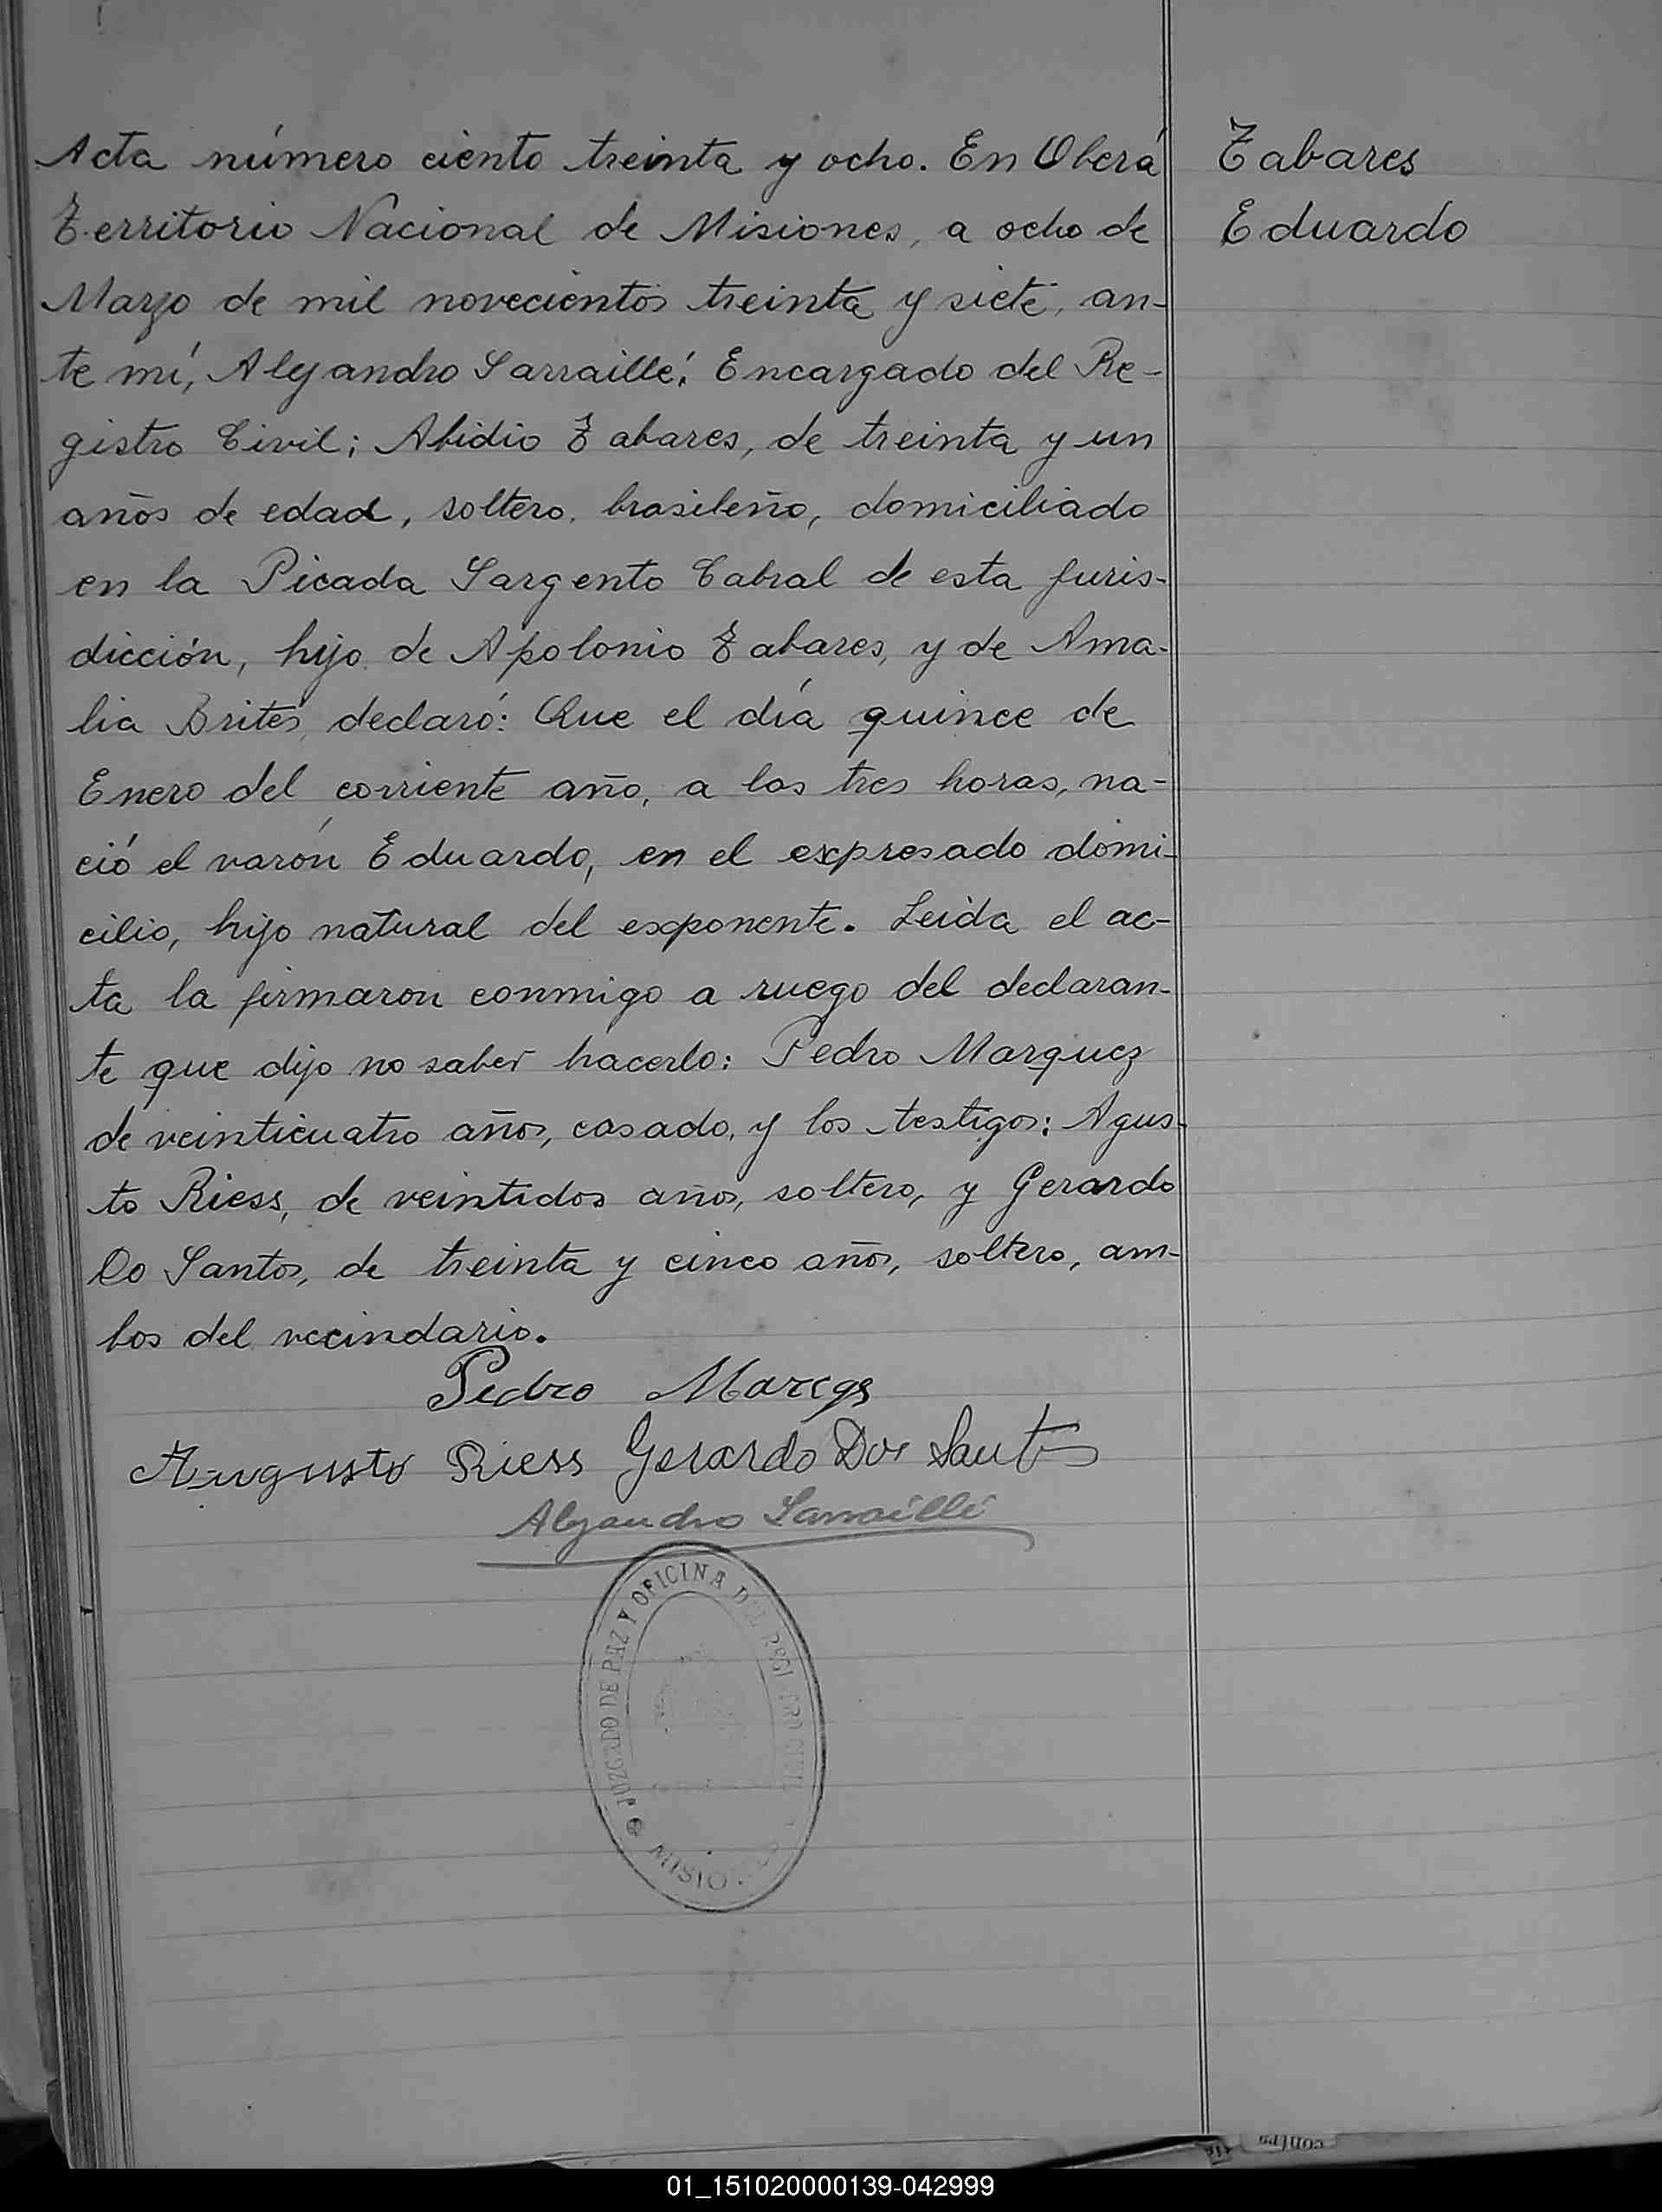 Acta número ciento treinta y ocho. En Oberá
Territorio Nacional de Misiones, a ocho de
Marzo de mil novecientos treinta y siete, an-
te mí, Alejandro Sarraillé, Encargado del Re-
gistro Civil; Abidio Tabares, de treinta y un
años de edad, soltero, brasileño, domiciliado
en la Picada Sargento Cabral de esta juris-
dicción, hijo de Apolonio Tabares, y de Ama-
lia Brites, declaró: Que el día quince de
Enero del corriente año, a las tres horas, na-
ció el varón Eduardo, en el expresado domi-
cilio, hijo natural del exponente. Leida el ac-
ta la firmaron conmigo a ruego del declaran-
te que dijo no saber hacerlo: Pedro Marquez
de veinticuatro años, casado, y los testigos: Agus-
to Riess, de veintidos años, soltero, y Gerardo
Do Santos, de treinta y cinco años, soltero, am-
bos del vecindario.
Tabares
Eduardo
Pedro
Augusto Riess Gerardo Dos Santos
Alejandro Sarraillé
JUZGADO DE PAZ Y OFICINA DEL REGISTRO CIVIL
MISIONES
contra
01_151020000139-042999